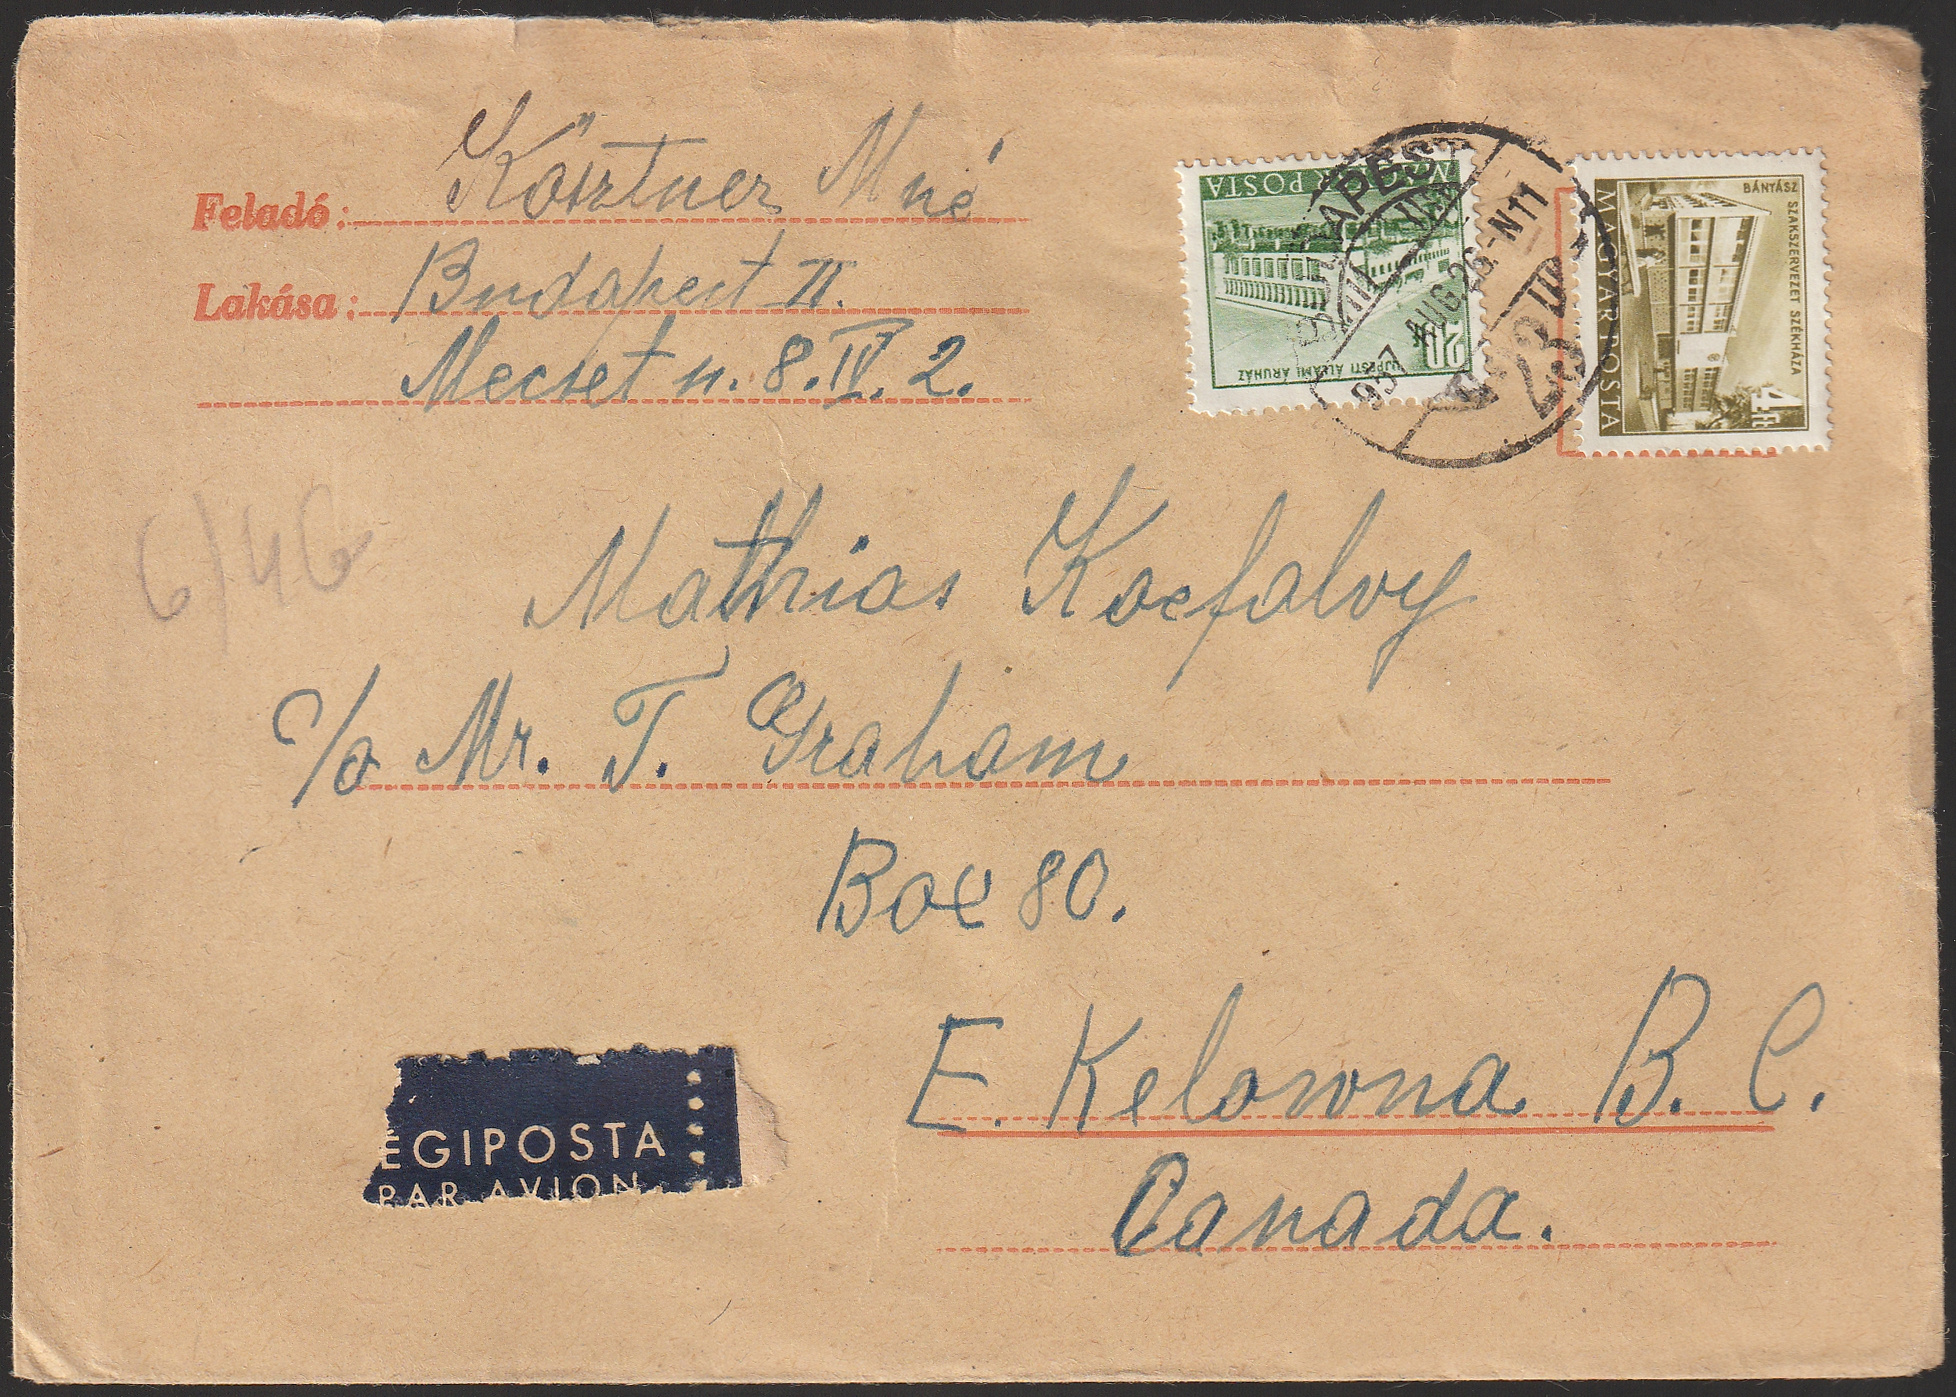 Feladó: Kösztner Mné
Lakása: Budapest II.
Mecset u. 8. IV. 2.
MAGYAR POSTA
20
ÚJPESTI ÁLLAMI ÁRUHÁZ
957 AUG. 26.-N11
BÁNYÁSZ
SZAKSZERVEZET SZÉKHÁZA
MAGYAR POSTA
4 Ft
6/46
Mathias Koefalvy
c/o Mr. T. Graham
Box 80.
E. Kelowna B. C.
Canada.
ÉGIPOSTA
PAR AVION